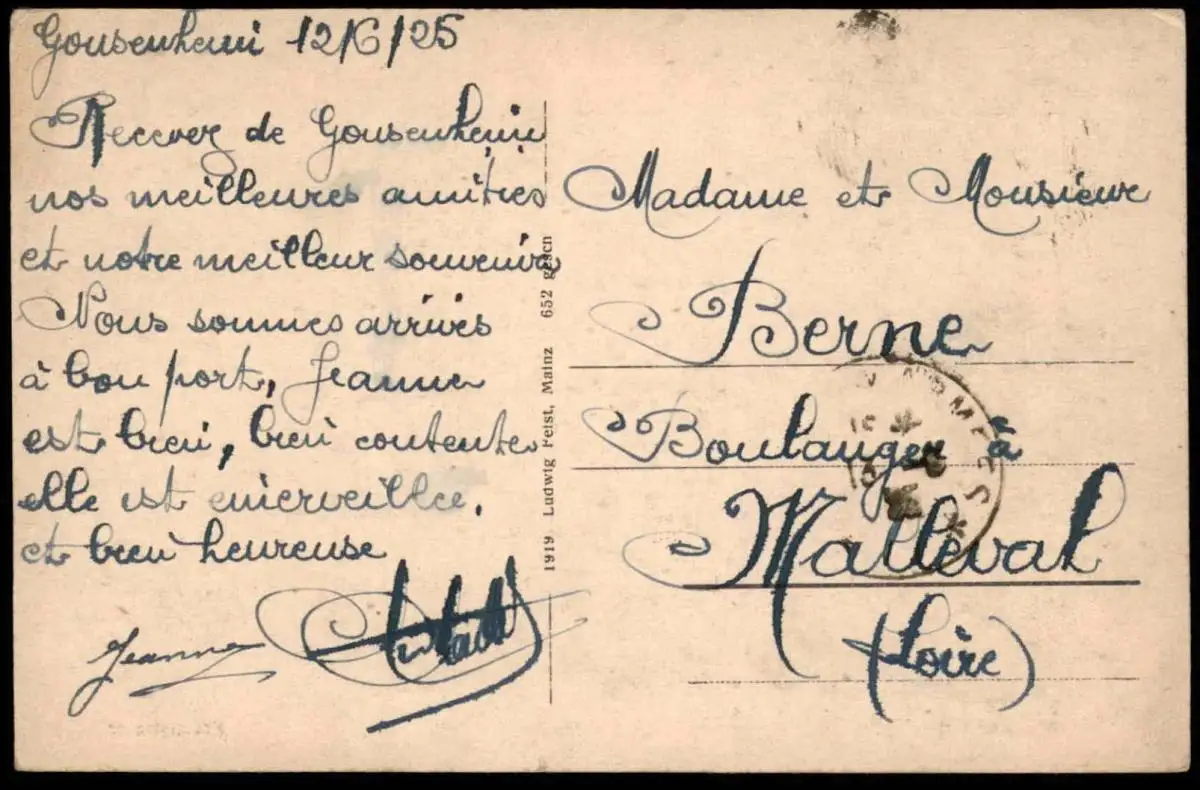 Gousenheim 12/6/25
Recevez de Gousenheim
nos meilleures amitiés
et notre meilleur souvenir
Nous sommes arrivés
à bon port, Jeanne
est bien, bien contente
elle est émerveillée.
et bien heureuse
Jeanne
1919 Ludwig Feist, Mainz 652 gesch
Madame et Monsieur
Berne
Boulanger à
Malleval
(Loire)